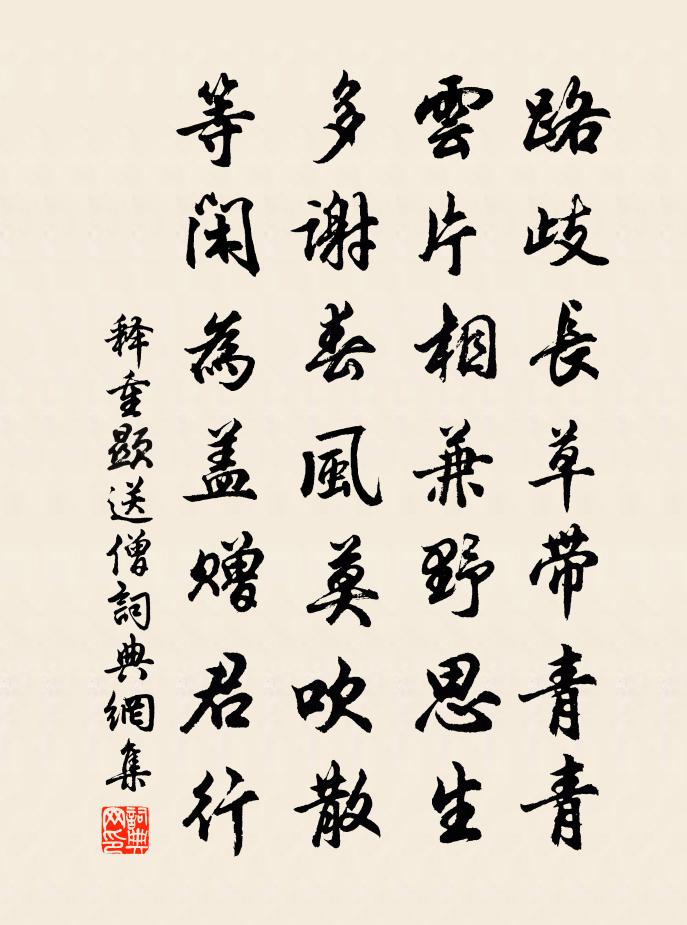 路歧長草帶青青
雲片相兼野思生
多謝春風莫吹散
等閑為蓋贈君行
释重顯送僧詞典網集
詞典网印